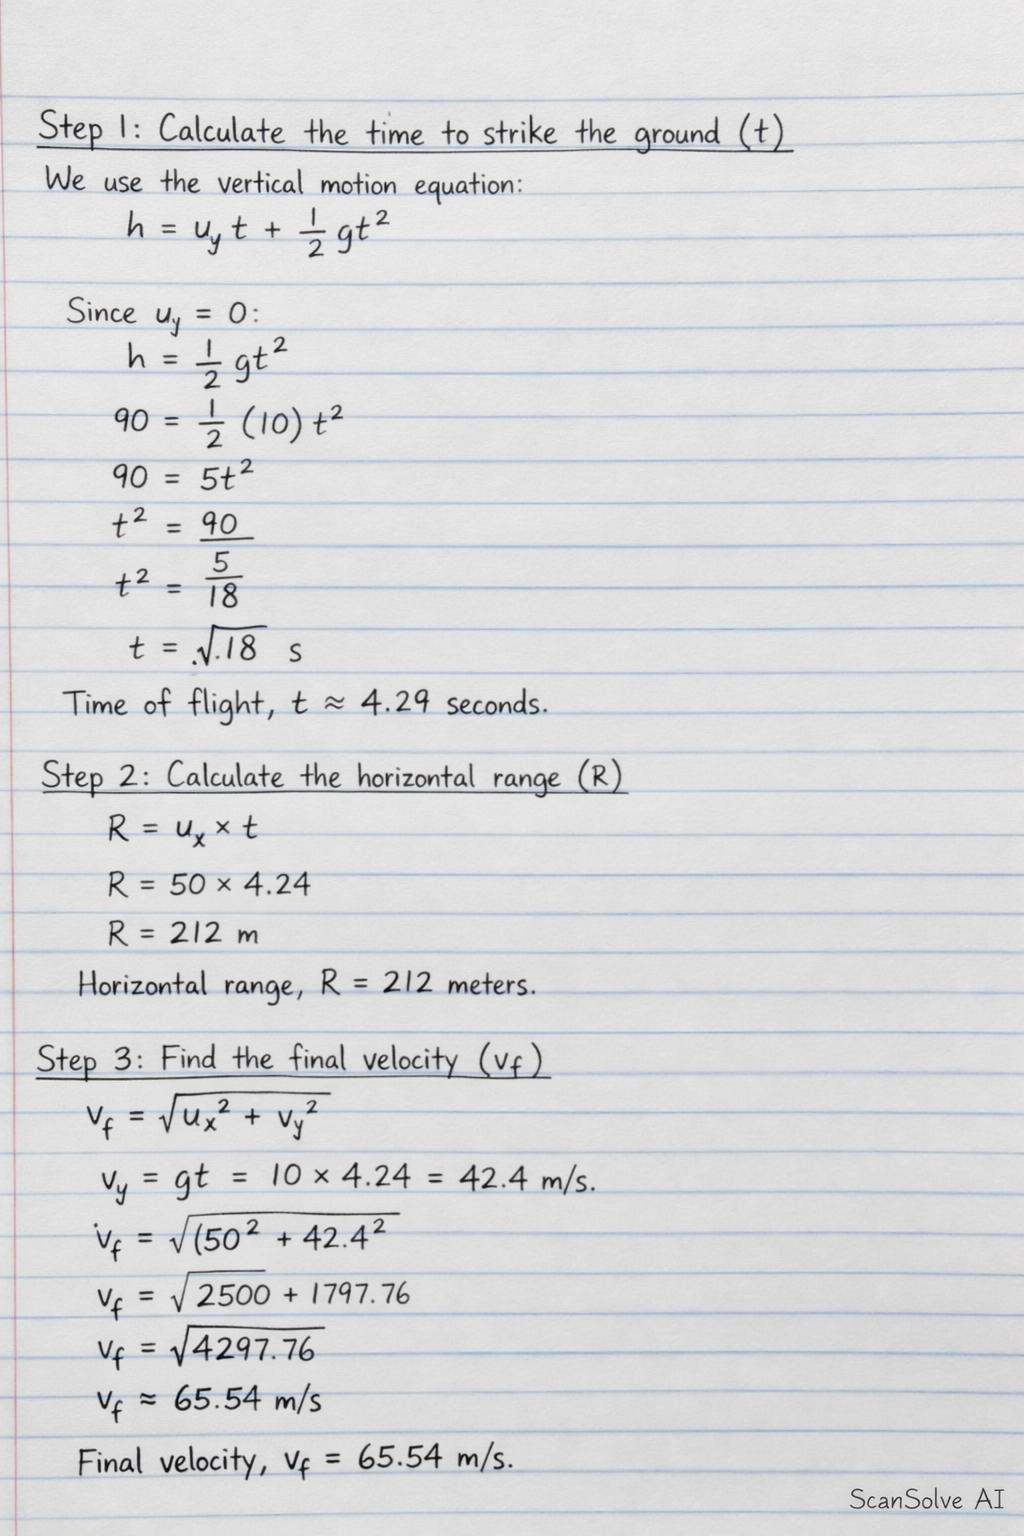 Step 1: Calculate the time to strike the ground (t)
We use the vertical motion equation:
h = u_y t + 1/2 gt²
Since u_y = 0:
h = 1/2 gt²
90 = 1/2 (10) t²
90 = 5t²
t² = 90
t² = 5/18
t = √.18 s
Time of flight, t ≈ 4.29 seconds.
Step 2: Calculate the horizontal range (R)
R = u_x × t
R = 50 × 4.24
R = 212 m
Horizontal range, R = 212 meters.
Step 3: Find the final velocity (v_f)
v_f = √u_x² + v_y²
v_y = gt = 10 × 4.24 = 42.4 m/s.
v_f = √(50² + 42.4²
v_f = √2500 + 1797.76
v_f = √4297.76
v_f ≈ 65.54 m/s
Final velocity, v_f = 65.54 m/s.
ScanSolve AI